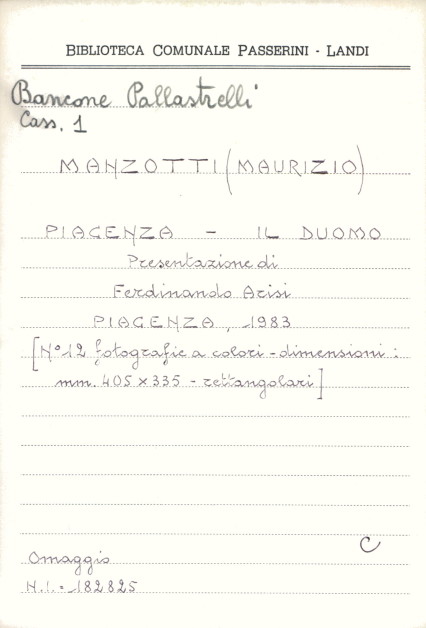 BIBLIOTECA COMUNALE PASSERINI - LANDI
Bancone Pallastrelli
Cass. 1
MANZOTTI (MAURIZIO)
PIACENZA - IL DUOMO
Presentazione di
Ferdinando Arisi
PIACENZA, 1983
[N° 12 fotografie a colori - dimensioni:
mm. 405 x 335 - rettangolari]
C
Omaggio
N.I. = 182825